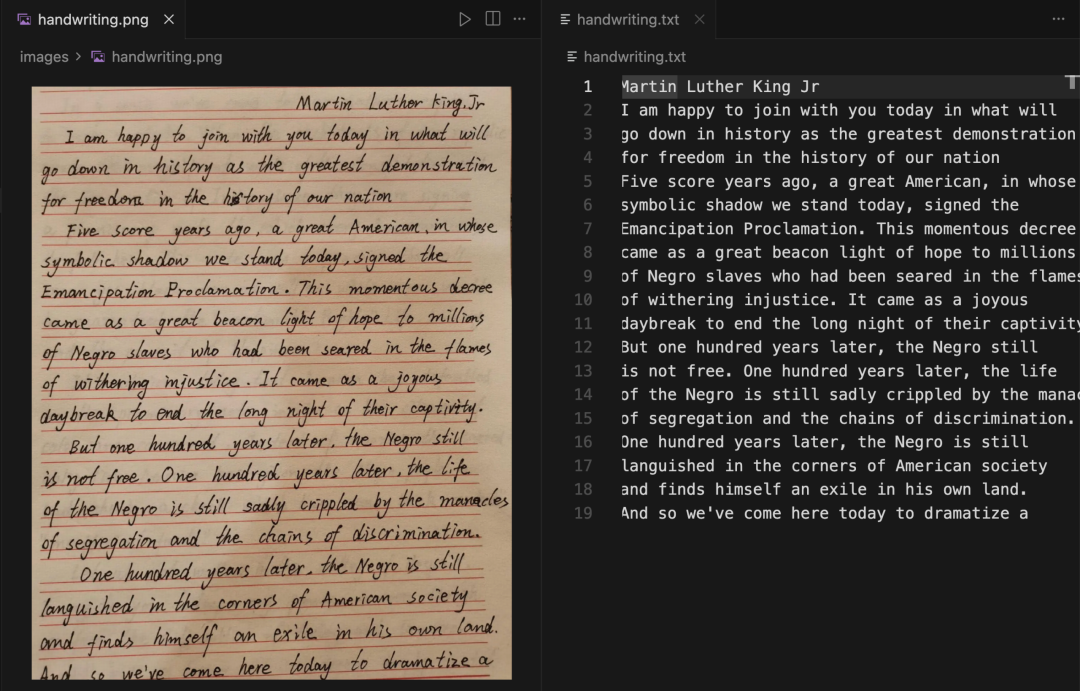 handwriting.png
handwriting.txt
images > handwriting.png
handwriting.txt
Martin Luther King, Jr
I am happy to join with you today in what will
go down in history as the greatest demonstration
for freedom in the history of our nation
Five score years ago, a great American, in whose
symbolic shadow we stand today, signed the
Emancipation Proclamation. This momentous decree
came as a great beacon light of hope to millions
of Negro slaves who had been seared in the flames
of withering injustice. It came as a joyous
daybreak to end the long night of their captivity.
But one hundred years later, the Negro still
is not free. One hundred years later, the life
of the Negro is still sadly crippled by the manacles
of segregation and the chains of discrimination.
One hundred years later, the Negro is still
languished in the corners of American society
and finds himself an exile in his own land.
And so we've come here today to dramatize a
1 Martin Luther King Jr
2 I am happy to join with you today in what will
3 go down in history as the greatest demonstration
4 for freedom in the history of our nation
5 Five score years ago, a great American, in whose
6 symbolic shadow we stand today, signed the
7 Emancipation Proclamation. This momentous decree
8 came as a great beacon light of hope to millions
9 of Negro slaves who had been seared in the flames
10 of withering injustice. It came as a joyous
11 daybreak to end the long night of their captivity
12 But one hundred years later, the Negro still
13 is not free. One hundred years later, the life
14 of the Negro is still sadly crippled by the manac
15 of segregation and the chains of discrimination.
16 One hundred years later, the Negro is still
17 languished in the corners of American society
18 and finds himself an exile in his own land.
19 And so we've come here today to dramatize a